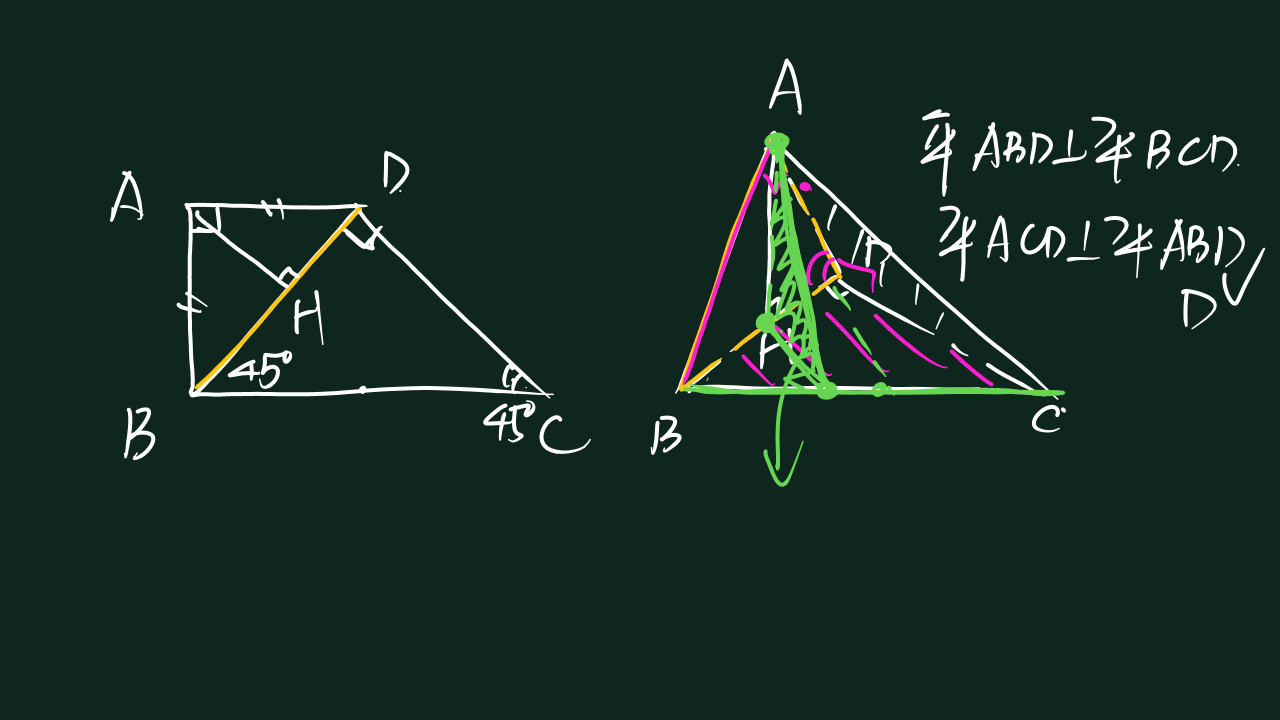 A
D
H
45°
B
45°
C
A
平ABD⊥平BCD.
平ACD⊥平ABD
D
H
B
C